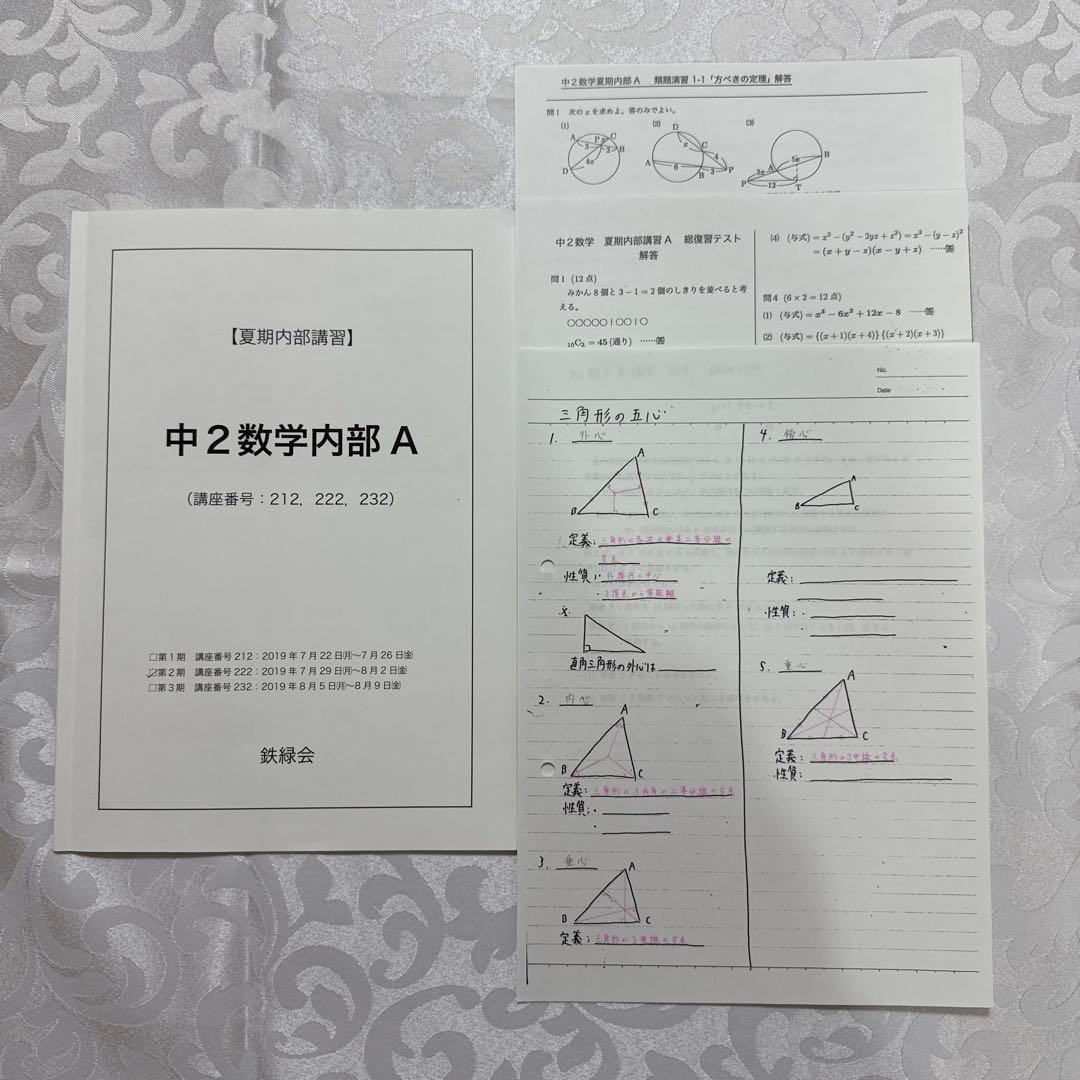 【夏期内部講習】
中２数学内部 A
（講座番号：212，222，232）
□第１期　講座番号 212：2019 年 7 月 22 日㈪〜7 月 26 日㈮
☑第２期　講座番号 222：2019 年 7 月 29 日㈪〜8 月 2 日㈮
□第３期　講座番号 232：2019 年 8 月 5 日㈪〜8 月 9 日㈮
鉄緑会
中２数学夏期内部 A　類題演習 1-1「方べきの定理」解答
問１　次の x を求めよ。答のみでよい。
(1)
A
P
x
C
3
2
B
4x
D
(2)
D
x
C
4
A
6
B
3
P
(3)
5x
B
3x
A
P
12
T
中２数学　夏期内部講習 A　総復習テスト
解答
問１（12 点）
みかん 8 個と 3 − 1 = 2 個のしきりを並べると考
える。
○○○○○|○○|○
₁₀C₂ = 45 (通り) ……㊎
(4)　(与式) = x² − (y² − 2yz + z²) = x² − (y − z)²
= (x + y − z)(x − y + z) ……㊎
問４（6 × 2 = 12 点）
(1)　(与式) = x³ − 6x² + 12x − 8 ……㊎
(2)　(与式) = {(x + 1)(x + 4)} {(x + 2)(x + 3)}
No.
Date
三角形の五心
1. 外心
A
B
C
定義: 三角形の各辺の垂直二等分線の
交点
性質: ・外接円の中心
・3頂点から等距離
※
直角三角形の外心は
2. 内心
A
B
C
定義: 三角形の3内角の二等分線の交点
性質: ・
・
3. 垂心
A
B
C
定義: 三角形の3垂線の交点
4. 傍心
A
B
C
定義:
性質: ・
5. 重心
A
B
C
定義: 三角形の3中線の交点
性質: